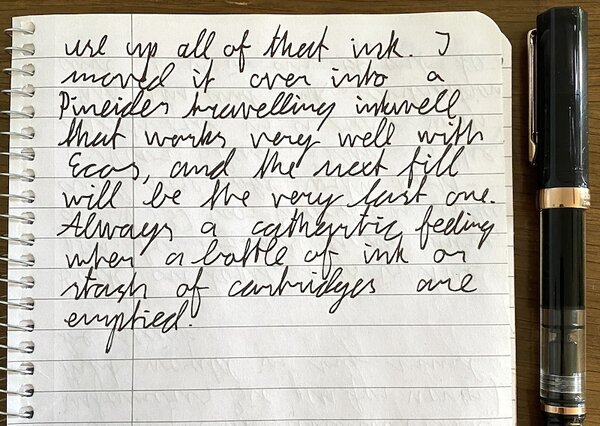 use up all of that ink. I
moved it over into a
Pineider travelling inkwell
that works very well with
Ecos, and the next fill
will be the very last one.
Always a cathartic feeling
when a bottle of ink or
stash of cartridges are
emptied.